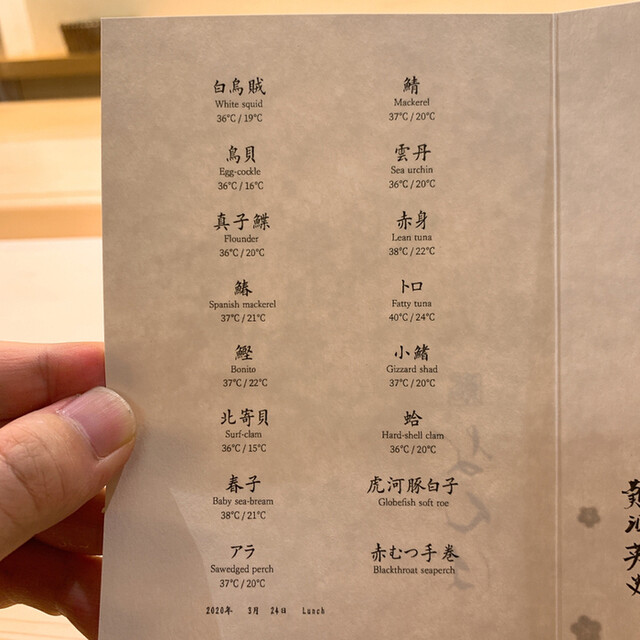 白烏賊
White squid
36°C / 19°C
鳥貝
Egg-cockle
36°C / 16°C
真子鰈
Flounder
36°C / 20°C
鰆
Spanish mackerel
37°C / 21°C
鰹
Bonito
37°C / 22°C
北寄貝
Surf-clam
36°C / 15°C
春子
Baby sea-bream
38°C / 21°C
アラ
Sawedged perch
37°C / 20°C
鯖
Mackerel
37°C / 20°C
雲丹
Sea urchin
36°C / 20°C
赤身
Lean tuna
38°C / 22°C
トロ
Fatty tuna
40°C / 24°C
小鰭
Gizzard shad
37°C / 20°C
蛤
Hard-shell clam
36°C / 20°C
虎河豚白子
Globefish soft roe
赤むつ手巻
Blackthroat seaperch
2020年 3月 24日 Lunch